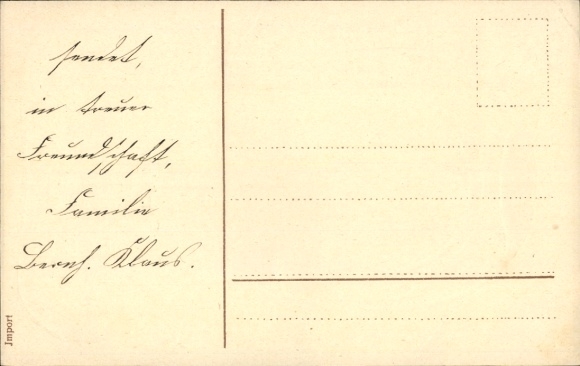 sendet,
in treuer
Freundschaft,
Familie
Bernh. Klaus.
Jmport